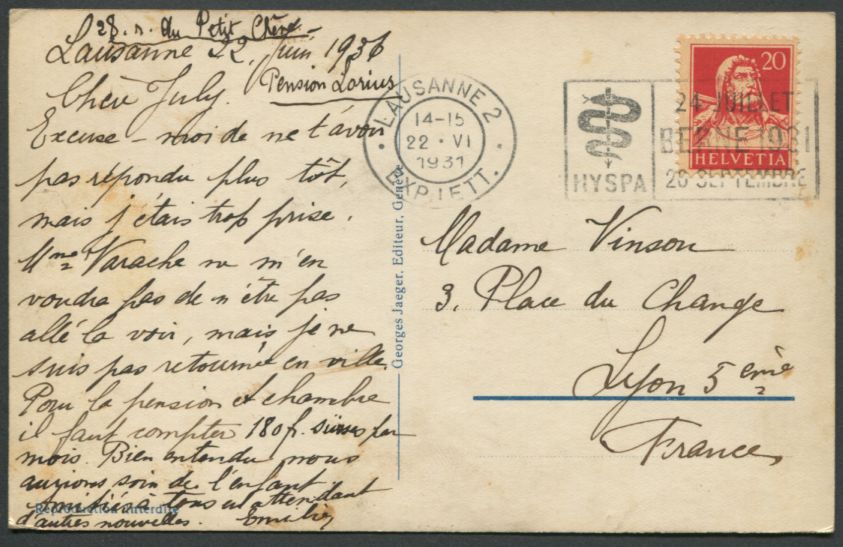 28. r. du Petit Chêne.
Lausanne 22, Juin 1931
Pension Lorius
Chère July.
Excuse-moi de ne t'avoir
pas répondu plus tôt,
mais j'étais trop prise.
Mme Varache ne m'en
voudra pas de n'être pas
allé la voir, mais je ne
suis pas retournée en ville.
Pour la pension et chambre
il faut compter 180 f. suisses par
mois. Bien entendu nous
aurions soin de l'enfant
amitiés à tous en attendant
d'autres nouvelles. Emilie
Reproduction interdite
Georges Jaeger, Editeur, Genève
LAUSANNE 2
14-15
22 · VI
1931
EXP. LETT.
HYSPA
24 JUILLET
BERNE 1931
20 SEPTEMBRE
20
HELVETIA
Madame Vinson
3, Place du Change
Lyon 5ème
France